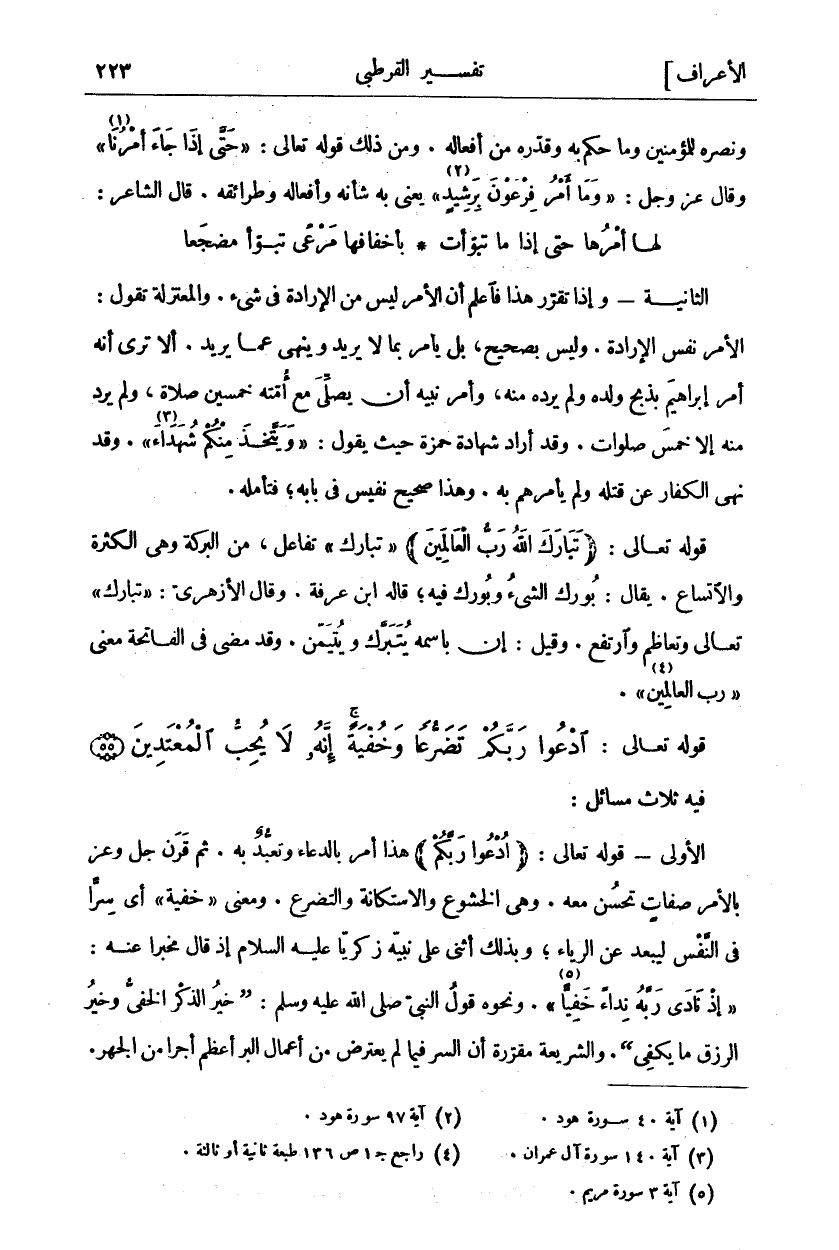 الأعراف] تفســـير القرطبى ٢٢٣
ونصره للمؤمنين وما حكم به وقدّره من أفعاله . ومن ذلك قوله تعالى : «حَتَّى إِذَا جَاءَ أَمْرُنَا»(١)
وقال عز وجل : «وَمَا أَمْرُ فِرْعَوْنَ بِرَشِيدٍ»(٢) يعنى به شأنه وأفعاله وطرائقه . قال الشاعر :
لهــا أمْرُها حتى إذا ما تبوّأت * بأخفافها مَرْعًى تبــوّأ مضجَعا
الثانيــة – و إذا تقرّر هذا فآعلم أن الأمر ليس من الإرادة فى شىء . والمعتزلة تقول :
الأمر نفس الإرادة . وليس بصحيح، بل يأمر بما لا يريد وينهى عمــا يريد . ألا ترى أنه
أمر إبراهيمَ بذبح ولده ولم يرده منه، وأمر نبيه أن يصلِّىَ مع أُمّته خمسين صلاة ، ولم يرد
منه إلا خمسَ صلوات . وقد أراد شهادة حمزة حيث يقول : «وَيَتَّخِذَ مِنْكُمْ شُهَدَاءَ»(٣) . وقد
نهى الكفار عن قتله ولم يأمرهم به . وهذا صحيح نفيس فى بابه؛ فتأمله .
قوله تعــالى : ﴿تَبَارَكَ اللهُ رَبُّ الْعَالَمِينَ﴾ «تبارك» تفاعل ، من البركة وهى الكثرة
والآتساع . يقال : بُورك الشىءُ وبُورك فيه؛ قاله ابن عرفة . وقال الأزهرىّ : «تبارك»
تعــالى وتعاظم وآرتفع . وقيل : إن باسمه يُتَبَرَّك ويُتَيَمّن . وقد مضى فى الفــاتحة معنى
«رب العالمين»(٤) .
قوله تعــالى : اَدْعُوا رَبَّكُمْ تَضَرُّعًا وَخُفْيَةً ۚ إِنَّهُۥ لَا يُحِبُّ اَلْمُعْتَدِينَ ﴿٥٥﴾
فيه ثلاث مسائل :
الأولى – قوله تعالى : ﴿اُدْعُوا رَبَّكُمْ﴾ هذا أمر بالدعاء وتعبُّدٌ به . ثم قَرَن جل وعز
بالأمر صفاتٍ تحسُن معه . وهى الخشوع والاستكانة والتضرع . ومعنى «خفية» أى سِرًّا
فى النَّفْس ليبعد عن الرياء ؛ وبذلك أثنى على نبيّه زكريّا عليــه السلام إذ قال مخبرا عنــه :
«إِذْ نَادَى رَبَّهُ نِدَاءً خَفِيًّا»(٥) . ونحوه قولُ النبىّ صلى الله عليه وسلم : ”خيرُ الذكر الخفىُّ وخيرُ
الرزق ما يكفِى“. والشريعة مقرّرة أن السر فيما لم يعترض من أعمال البر أعظم أجرا من الجهر.
(١) آية ٤٠ ســورة هود . (٢) آية ٩٧ سورة هود .
(٣) آية ١٤٠ سورة آل عمران . (٤) راجع جـ ١ ص ١٣٦ طبعة ثانية أو ثالثة .
(٥) آية ٣ سورة مريم .